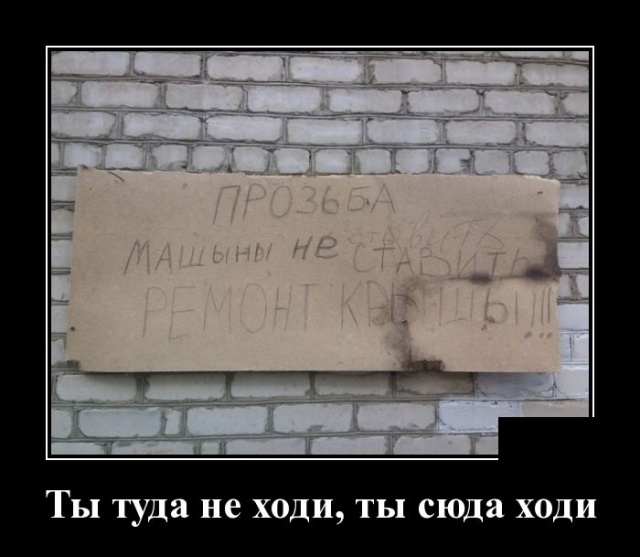 ПРОЗЬБА
МАШЫНЫ НЕ СТАВИТЬ
РЕМОНТ КРЫШЫ!!!
Ты туда не ходи, ты сюда ходи